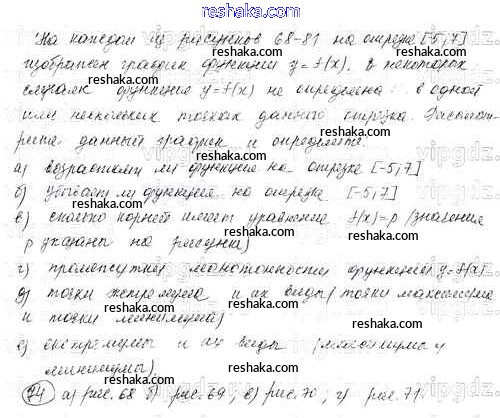 reshak.com
На каждом из рисунков 68-81 на отрезке [-5;7]
изображен график функции y=f(x), в некоторых
случаях функция y=f(x) не определена в одной
или нескольких точках данного отрезка. Рассмот-
рите данный график и определите:
а) возрастает ли функция на отрезке [-5;7]
б) убывает ли функция на отрезке [-5;7]
в) сколько корней имеет уравнение f(x)=p (значения
p указаны на рисунке)
г) промежутки монотонности функции y=f(x)
д) точки экстремума и их виды (точки максимума
и точки минимума)
е) экстремумы и их виды (максимумы и
минимумы).
74 а) рис. 68 б) рис. 69, в) рис. 70, г) рис. 71.